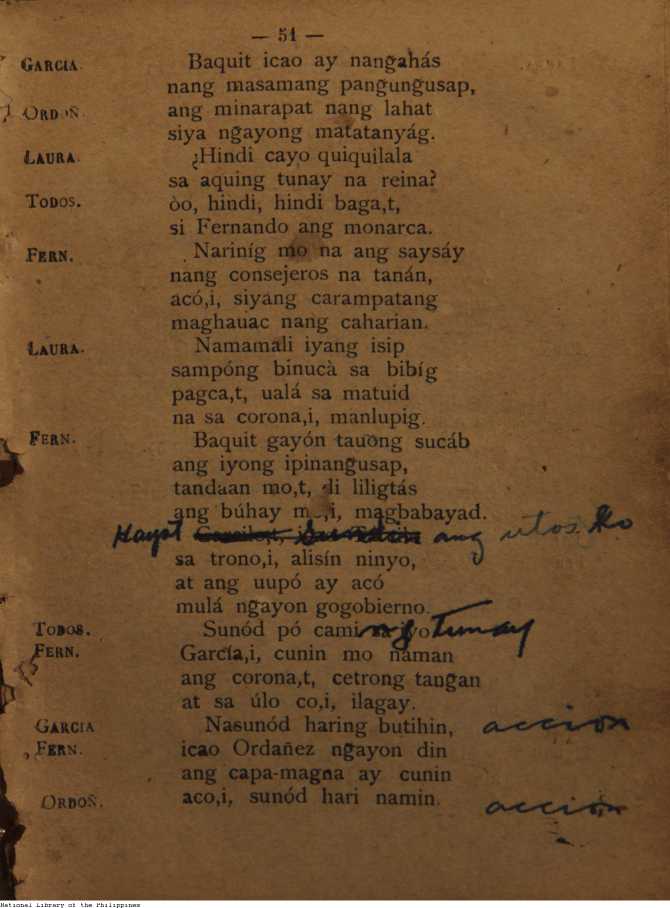 — 51 —
GARCIA. Baquit icao ay nangahás
nang masamang pangungusap,
ORDOÑ ang minarapat nang lahat
siya ngayong matatanyág.
LAURA. ¿Hindi cayo quiquilala
sa aquing tunay na reina?
TODOS. òo, hindi, hindi baga,t,
si Fernando ang monarca.
FERN. Nariníg mo na ang saysáy
nang consejeros na tanán,
acó,i, siyang carampatang
maghauac nang caharian.
LAURA. Namamali iyang isip
sampóng binucà sa bibíg
pagca,t, ualá sa matuid
na sa corona,i, manlupig.
FERN. Baquit gayón tauong sucáb
ang iyong ipinangusap,
tandaan mo,t, di liligtás
ang búhay mo,i, magbabayad.
Kayat sundin ang utos ko
sa trono,i, alisín ninyo,
at ang uupó ay acó
mulá ngayon gogobierno.
TODOS. Sunód pó cami ng tunay
FERN. García,i, cunin mo naman
ang corona,t, cetrong tangan
at sa úlo co,i, ilagay.
GARCIA Nasunód haring butihin, accion
FERN. icao Ordañez ngayon din
ang capa-magna ay cunin
ORDOÑ. aco,i, sunód hari namin. accion
National Library of the Philippines